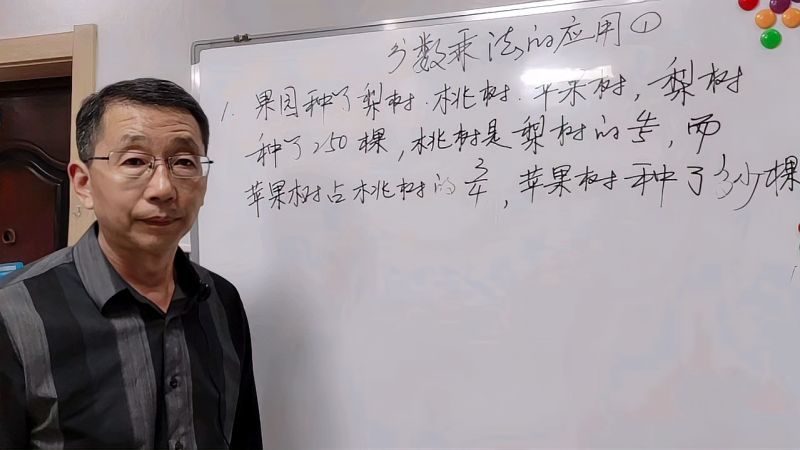 分数乘法的应用①
1. 果园种了梨树.桃树.苹果树，梨树
种了250棵，桃树是梨树的4/5，而
苹果树占桃树的3/4，苹果树种了多少棵